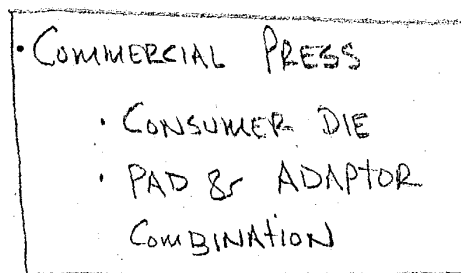 • COMMERCIAL PRESS
• CONSUMER DIE
• PAD & ADAPTOR
COMBINATION